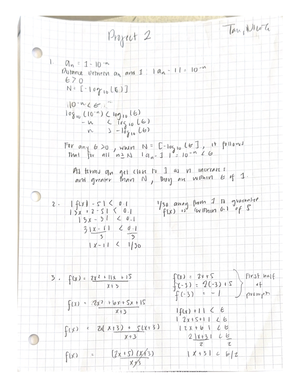 Project 2
1. aₙ = 1 - 10⁻ⁿ
Distance between aₙ and 1 : |aₙ - 1| = 10⁻ⁿ
ϵ > 0
N = ⌈-log₁₀(ϵ)⌉
10⁻ⁿ < ϵ
log₁₀(10⁻ⁿ) < log₁₀(ϵ)
-n < log₁₀(ϵ)
n > -log₁₀(ϵ)
For any ϵ > 0, when N = ⌈-log₁₀(ϵ)⌉, it follows
that for all n ≥ N |aₙ - 1| = 10⁻ⁿ < ϵ
All terms aₙ get close to 1 as n increases
and greater than N, they are within ϵ of 1.
2. |f(x) - 5| < 0.1
|3x + 2 - 5| < 0.1
|3x - 3| < 0.1
3|x - 1| < 0.1
3 3
|x - 1| < 1/30
1/30 away from 1 to guarantee
f(x) is within 0.1 of 5
3. f(x) = 2x² + 11x + 15
x + 3
f(x) = 2x² + 6x + 5x + 15
x + 3
f(x) = 2x(x+3) + 5(x+3)
x + 3
f(x) = (2x+5)(x+3)
x+3
f(x) = 2x + 5
f(-3) = 2(-3) + 5
f(-3) = -1
First half
of
prompt
|f(x) + 1| < ϵ
|2x + 5 + 1| < ϵ
|2x + 6| < ϵ
2|x + 3| < ϵ
2 2
|x + 3| = ϵ/2